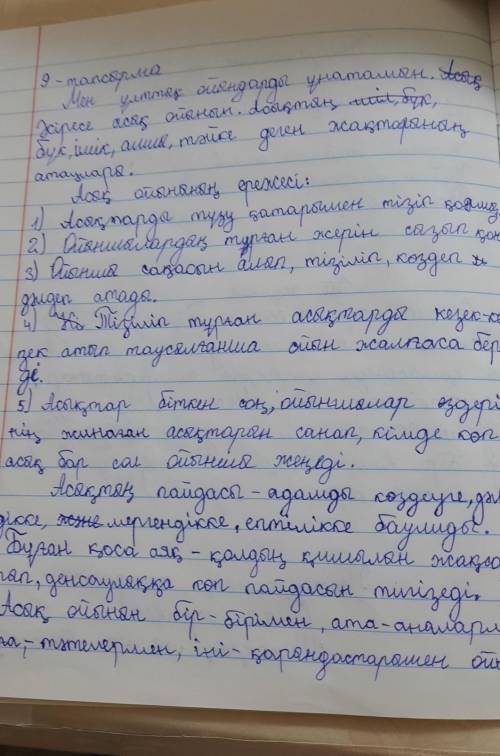 9-тапсырма
Мен ұлттық ойындарды ұнатамын. Асық
Әсіресе асық ойынын. Асықтың шік, бүк,
бүк, шік, алшы, тәйке деген жақтарының
аталары.
Асық ойынының ережесі:
1) Асықтарды түзу қатарымен тізіп қою
2) Ойыншылардың тұрған жерін сызып қою
3) Ойыншы сақасын алып, тізіліп, көздеп
дәлдеп атады.
4) Тізіліп тұрған асықтарды кезек-ке
зек атып таусылғанша ойын жалғаса бер
ді.
5) Асықтар біткен соң, ойыншылар өздері
нің жинаған асықтарын санап, кімде көп
асық бар сол ойыншы жеңеді.
Асықтың пайдасы - адамды көздеуге, дәл
дікке, және мергендікке, ептілікке баулиды.
Бұған қоса аяқ-қолдың қимылын жақса
тып, денсаулыққа көп пайдасын тигізеді.
Асық ойынын бір-бірімен, ата-аналарм
ға, -тәтелермен, іні-қарындастарымен ойн